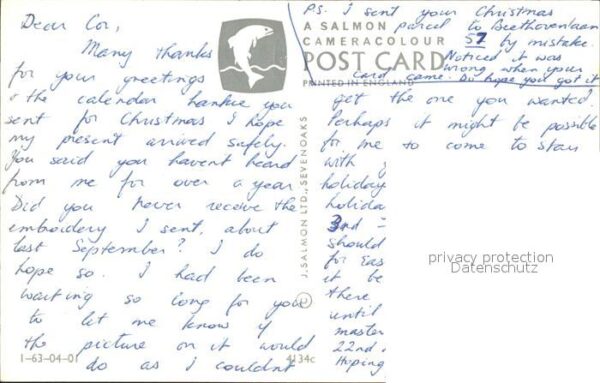 Dear Cor,
Many thanks
for your greetings
& the calendar hankie you
sent for Christmas I hope
my present arrived safely.
You said you havent heard
from me for over a year
Did you never receive the
embroidery I sent, about
last September? I do
hope so. I had been
waiting so long for you
to let me know if
the picture on it would
do as I couldnt
1-63-04-01
A SALMON
CAMERACOLOUR
POST CARD
PRINTED IN ENGLAND
J. SALMON LTD., SEVENOAKS
4134c
P.S. I sent your Christmas
parcel to Beethovenlaan
57 by mistake.
Noticed it was
wrong when your
card came. Do hope you got it
get the one you wanted.
Perhaps it might be possible
for me to come to stay
with
holiday
holida
3rd
should
for Eas
it be
there
until
master
22nd
Hoping
privacy protection
Datenschutz